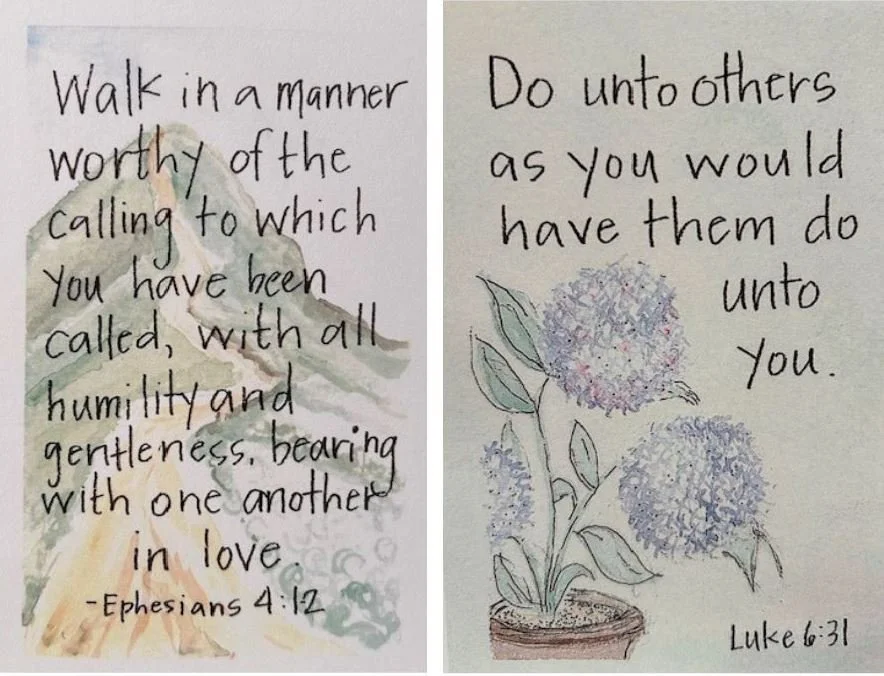 Walk in a manner
worthy of the
calling to which
you have been
called, with all
humility and
gentleness. bearing
with one another
in love.
-Ephesians 4:12
Do unto others
as you would
have them do
unto
you.
Luke 6:31